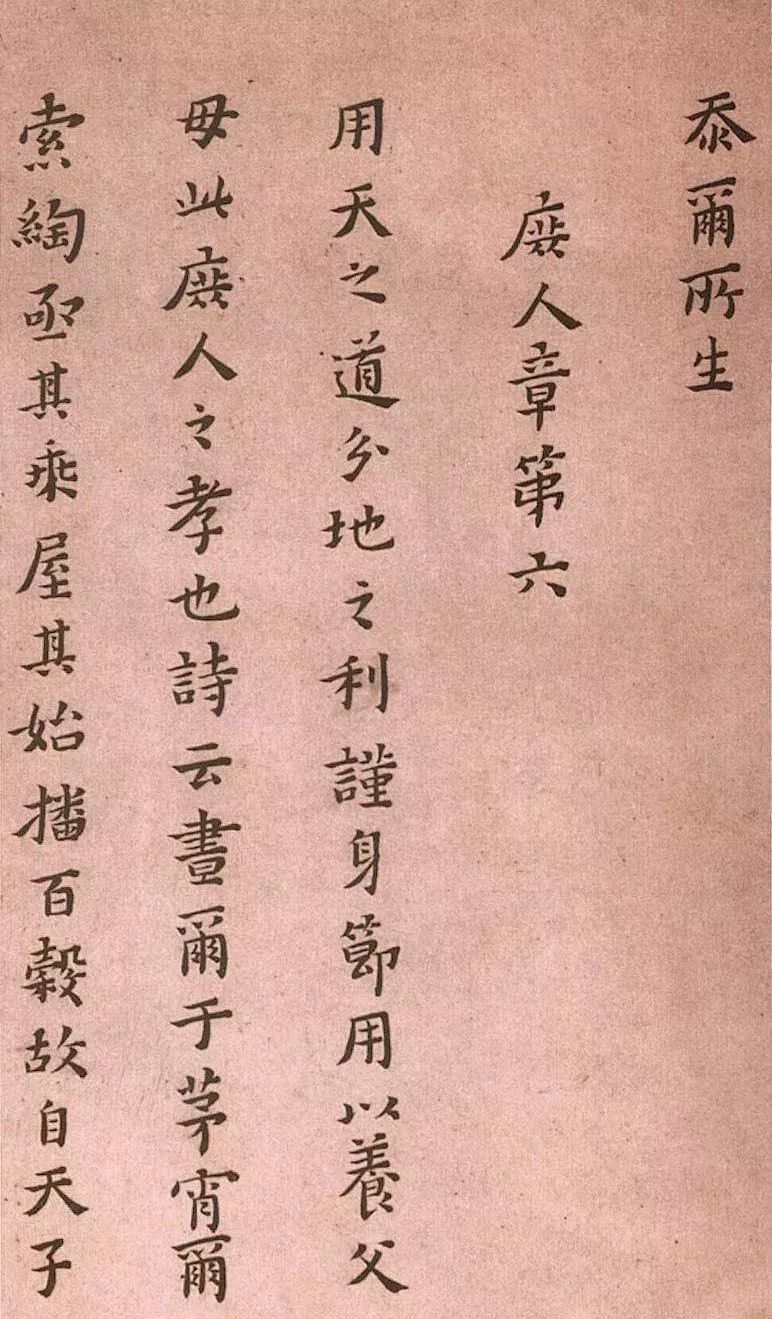 忝爾所生
庶人章第六
用天之道分地之利謹身節用以養父
母此庶人之孝也詩云晝爾于茅宵爾
索綯亟其乘屋其始播百穀故自天子